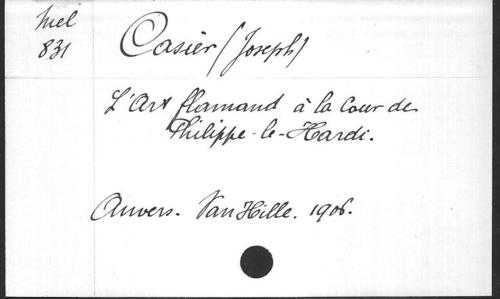 Mel
831
Casier (Joseph)
L'Art flamand à la Cour de
Philippe-le-Hardi.
Anvers. Van Hille. 1906.